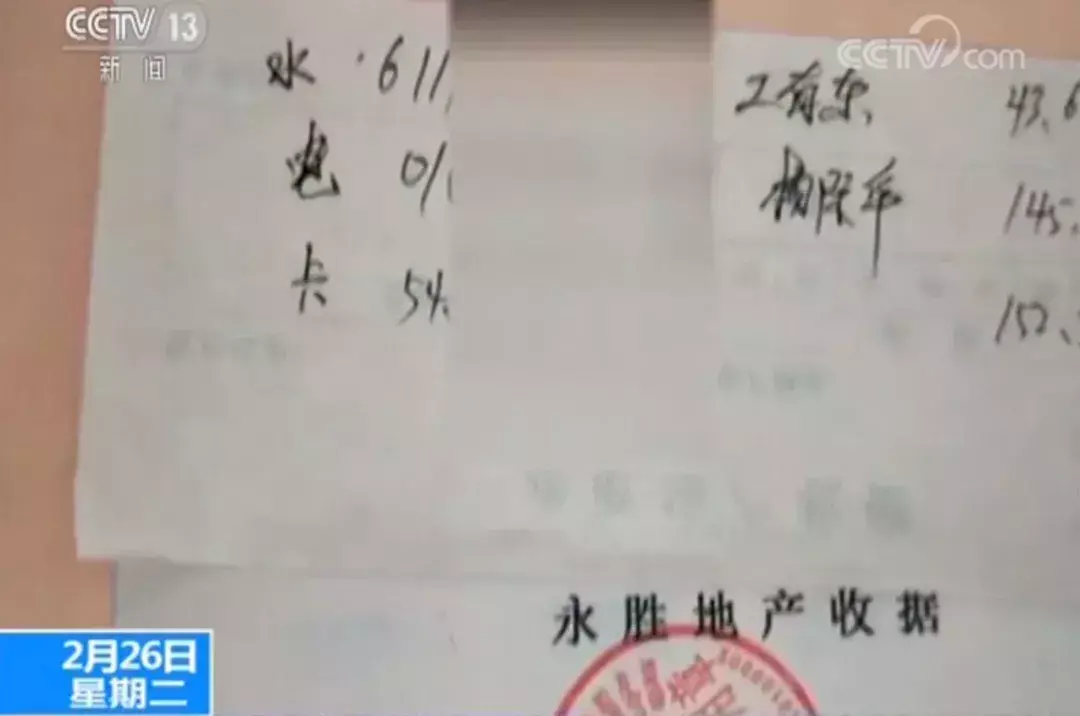 CCTV 13
新闻
CCTV.com
水 611
电 01
卡 54.
工有东 43.6
杨保华 145.
152.
永胜地产收据
2月26日
星期二